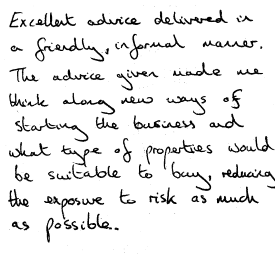 Excellent advice delivered in
a friendly, informal manner.
The advice given made me
think along new ways of
starting the business and
what type of properties would
be suitable to buy, reducing
the exposure to risk as much
as possible..